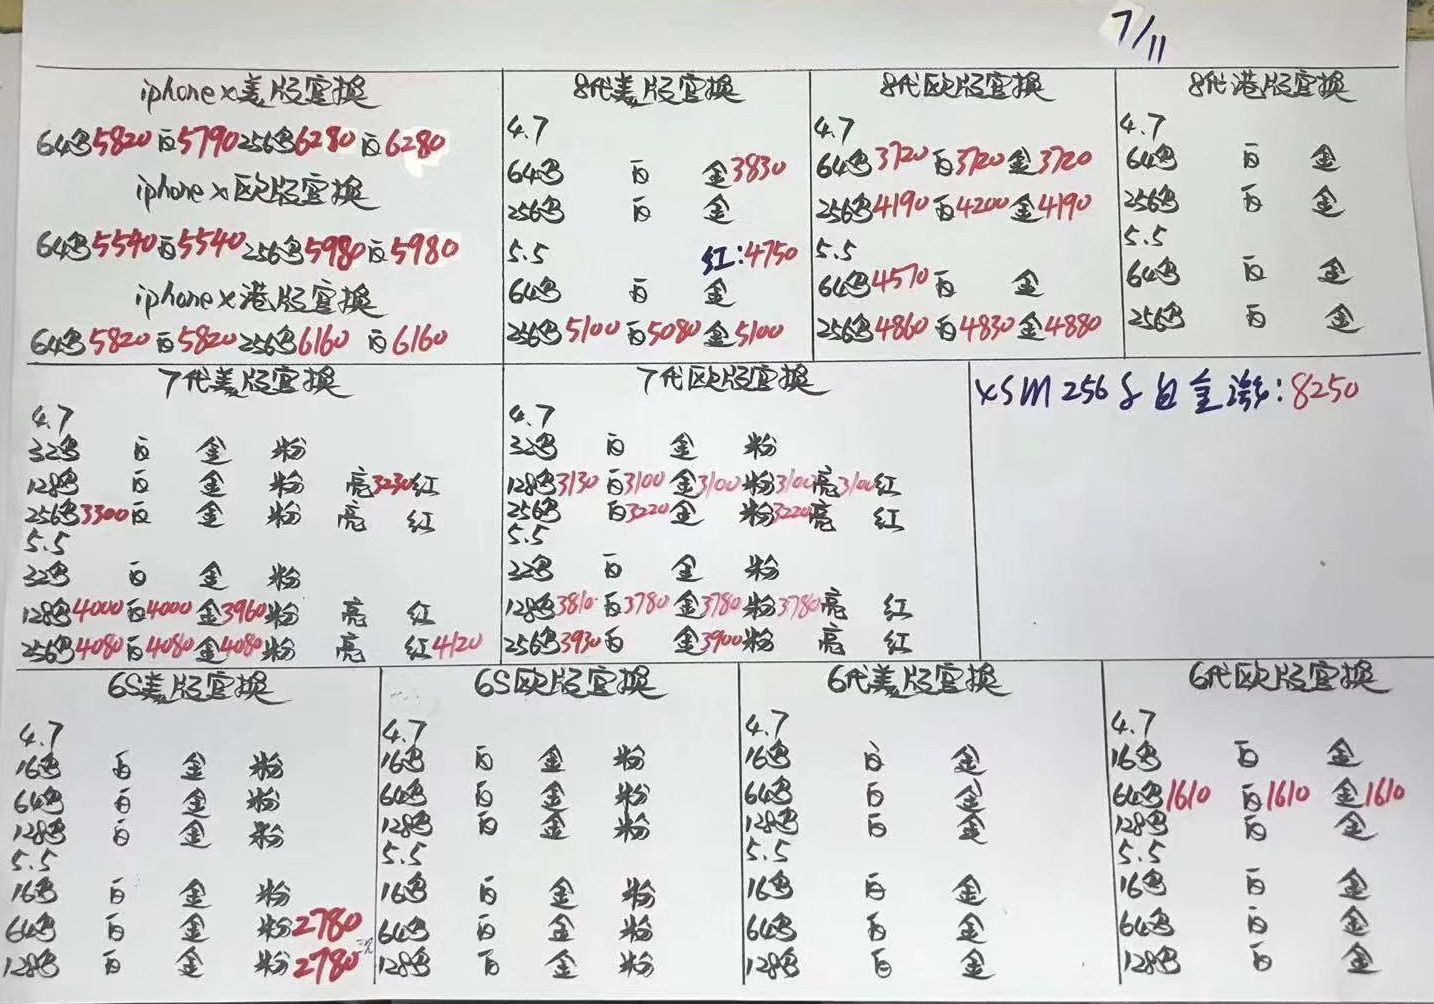 7/11
iphone x美版官换
64黑5820白5790 256黑6280白6280
iphone x欧版官换
64黑5540白5540 256黑5980白5980
iphone x港版官换
64黑5820白5820 256黑6160白6160
8代美版官换
4.7
64黑 白 金3830
256黑 白 金
5.5 红:4750
64黑 白 金
256黑5100白5080金5100
8代欧版官换
4.7
64黑3720白3720金3720
256黑4190白4200金4190
5.5
64黑4570白 金
256黑4860白4830金4880
8代港版官换
4.7
64黑 白 金
256黑 白 金
5.5
64黑 白 金
256黑 白 金
7代美版官换
4.7
32黑 白 金 粉
128黑 白 金 粉 亮3230红
256黑3300白 金 粉 亮 红
5.5
32黑 白 金 粉
128黑4000白4000金3960粉 亮 红
256黑4080白4080金4080粉 亮 红4120
7代欧版官换
4.7
32黑 白 金 粉
128黑3130白3100金3100粉3100亮3100红
256黑 白3220金 粉3220亮 红
5.5
32黑 白 金 粉
128黑3810白3780金3780粉3780亮 红
256黑3930白 金3900粉 亮 红
XSM 256 白金:8250
6S美版官换
4.7
16黑 白 金 粉
64黑 白 金 粉
128黑 白 金 粉
5.5
16黑 白 金 粉
64黑 白 金 粉2780
128黑 白 金 粉2780
6S欧版官换
4.7
16黑 白 金 粉
64黑 白 金 粉
128黑 白 金 粉
5.5
16黑 白 金 粉
64黑 白 金 粉
128黑 白 金 粉
6代美版官换
4.7
16黑 白 金
64黑 白 金
128黑 白 金
5.5
16黑 白 金
64黑 白 金
128黑 白 金
6代欧版官换
4.7
16黑 白 金
64黑1610 白1610 金1610
128黑 白 金
5.5
16黑 白 金
64黑 白 金
128黑 白 金